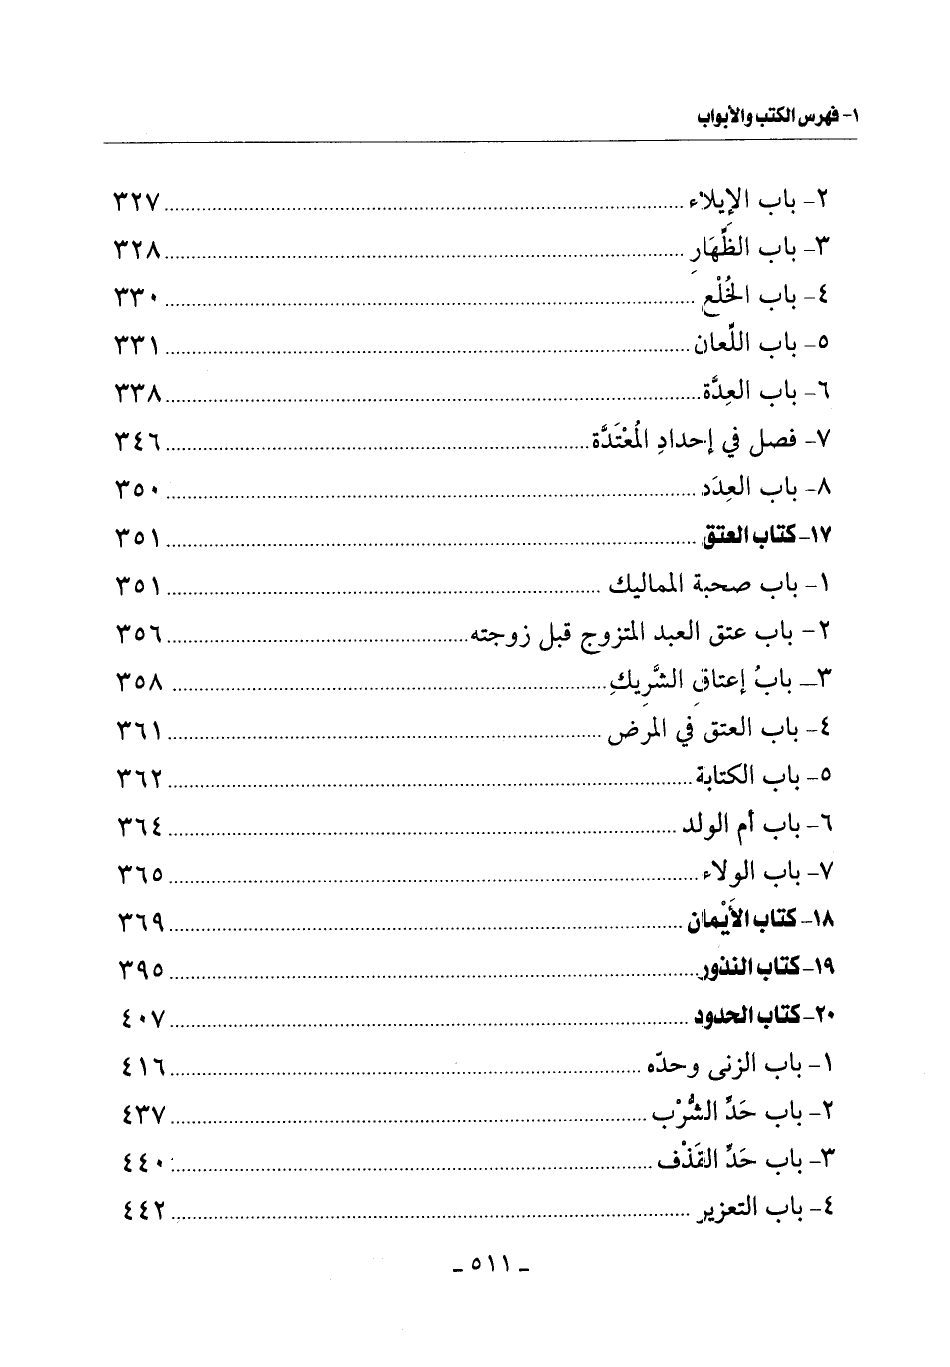 ١- فهرس الكتب والأبواب
٢- باب الإيلاء ........ ٣٢٧
٣- باب الظِّهَارِ ........ ٣٢٨
٤- باب الخُلْعِ ........ ٣٣٠
٥- باب اللِّعان ........ ٣٣١
٦- باب العِدَّة ........ ٣٣٨
٧- فصل في إحدادِ المُعْتَدَّة ........ ٣٤٦
٨- باب العِدَد ........ ٣٥٠
١٧- كتاب العتق ........ ٣٥١
١- باب صحبة المماليك ........ ٣٥١
٢- باب عتق العبد المتزوج قبل زوجته ........ ٣٥٦
٣- بابُ إعتاقِ الشَّرِيكِ ........ ٣٥٨
٤- باب العتق في المرض ........ ٣٦١
٥- باب الكتابة ........ ٣٦٢
٦- باب أم الولد ........ ٣٦٤
٧- باب الولاء ........ ٣٦٥
١٨- كتاب الأَيْمان ........ ٣٦٩
١٩- كتاب النذور ........ ٣٩٥
٢٠- كتاب الحدود ........ ٤٠٧
١- باب الزنى وحدّه ........ ٤١٦
٢- باب حَدِّ الشُّرْب ........ ٤٣٧
٣- باب حَدِّ القَذْف ........ ٤٤٠
٤- باب التعزير ........ ٤٤٢
- ٥١١ -